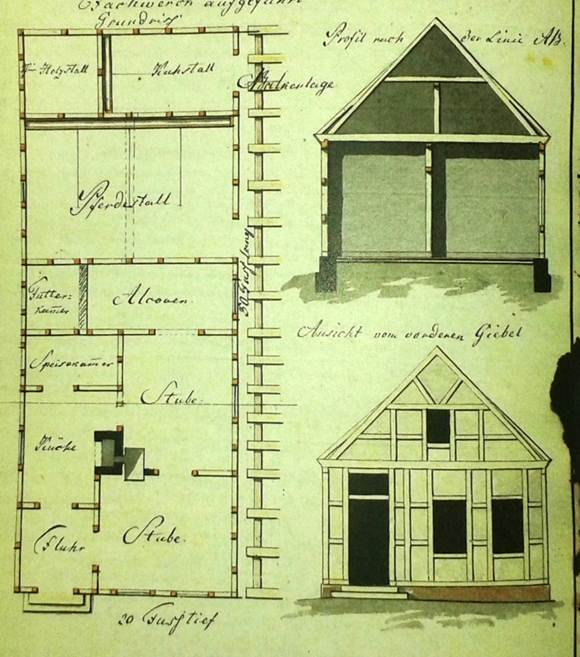 Fachwerch aufgeführt
Grundriss
Holzstall
Kuhstall
Balkenlage
Pferdestall
Futter-
kamer
Alcoven.
50 Fuss lang
Speisekamer
Stube.
Küche
Fluhr
Stube.
20 Fuss tief
Profil nach der Linie AB.
Ansicht vom vorderen Giebel